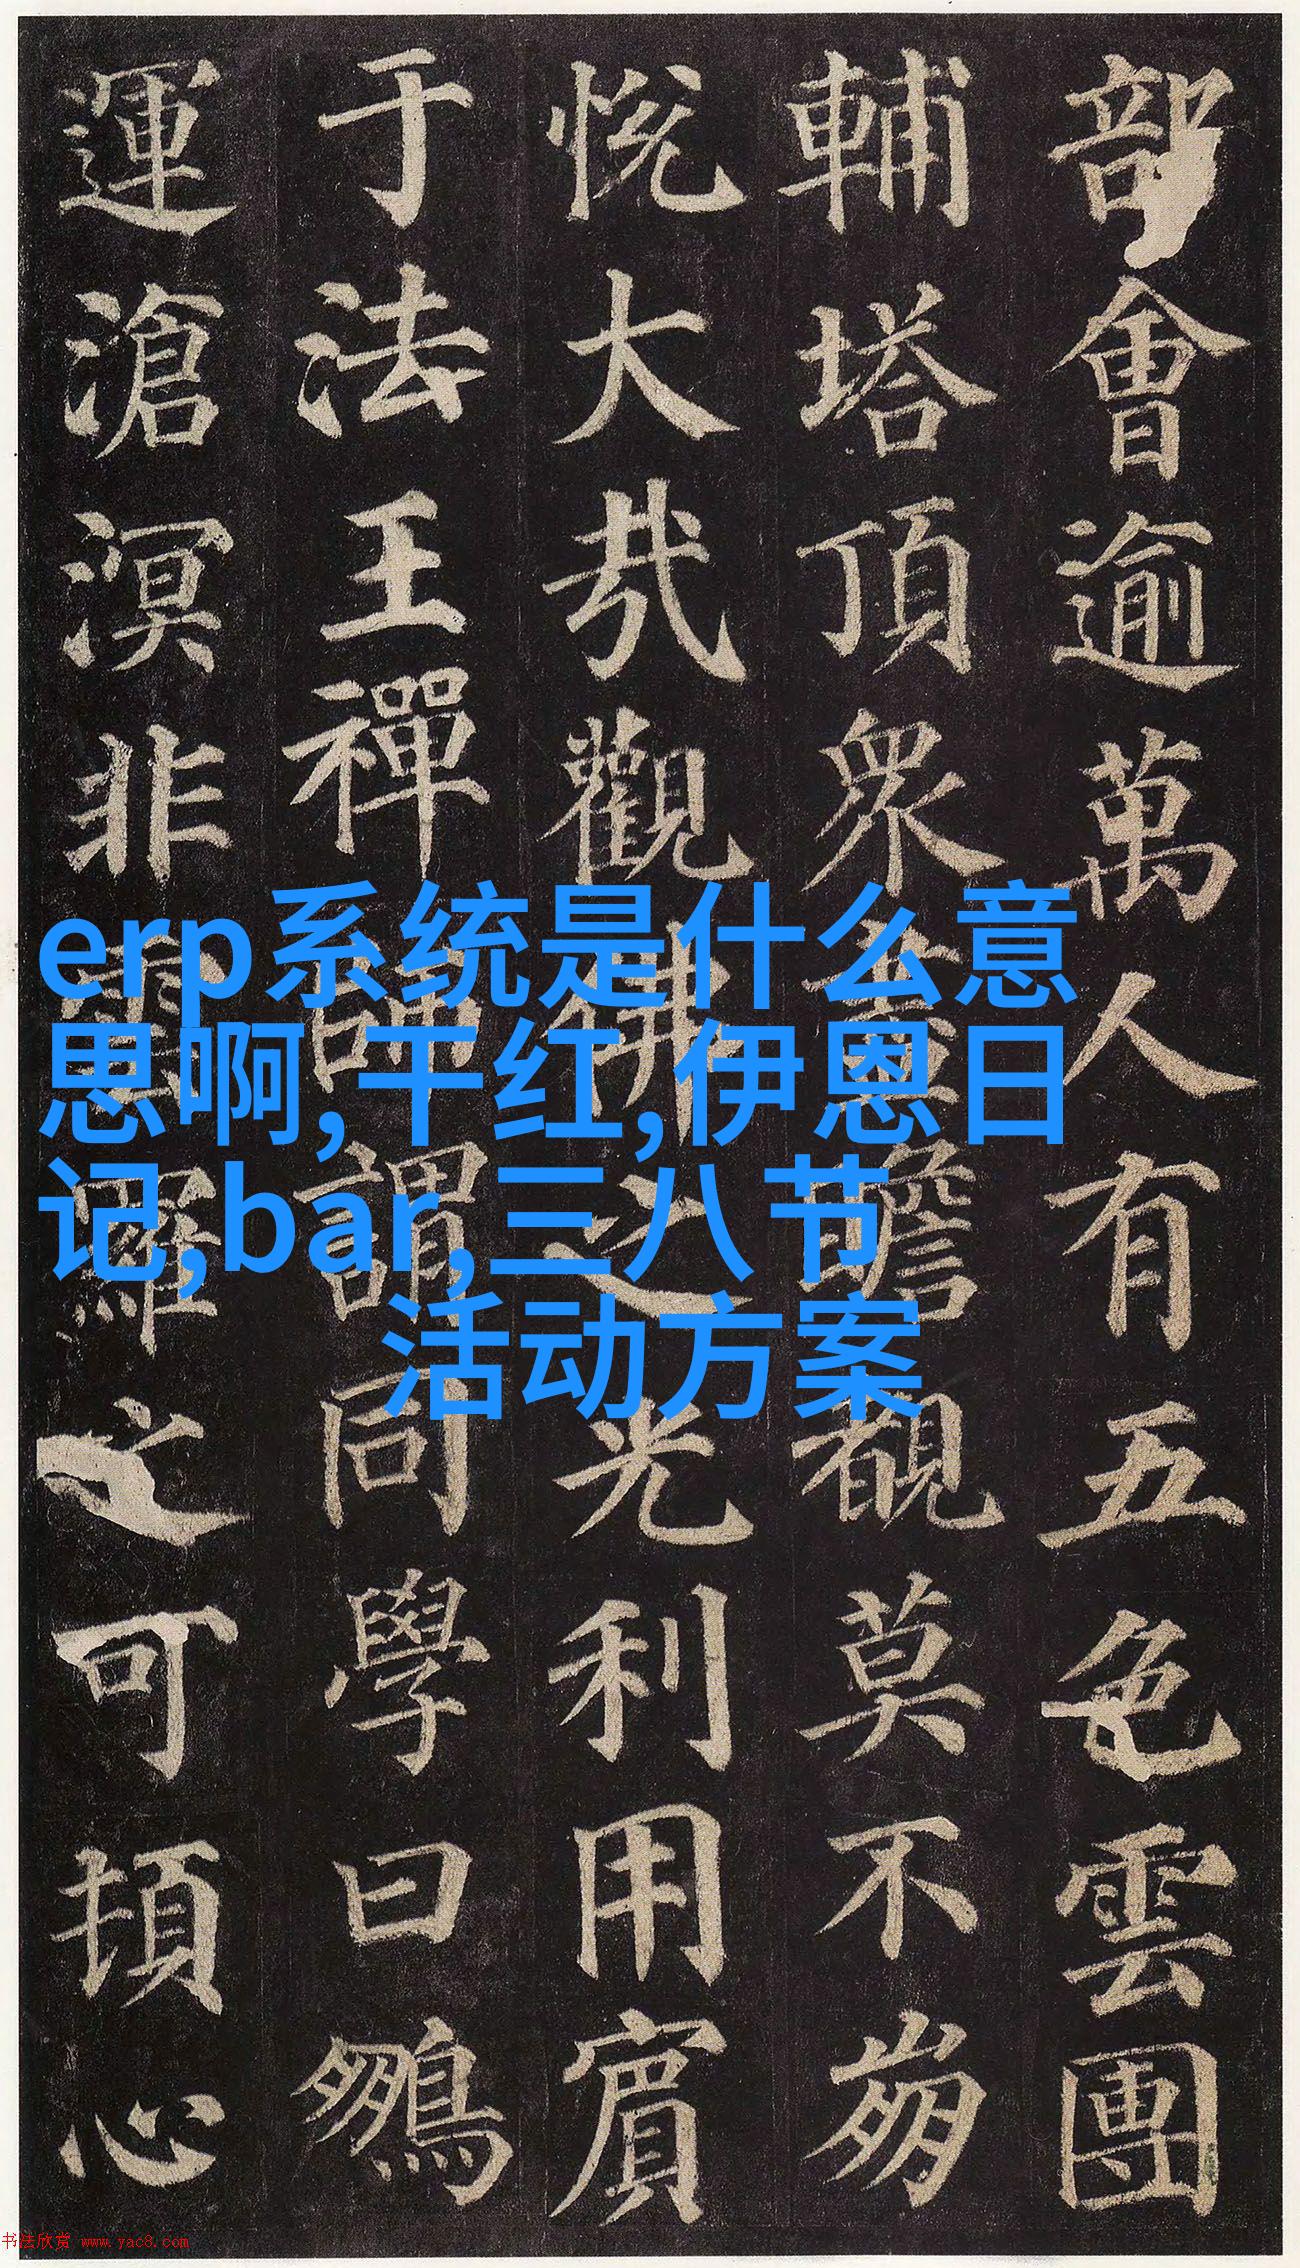 部會逾萬人有五色雲團
輔塔頂衆盡瞻覩莫不崩
悅大哉觀佛之光利用賓
于法王禪師謂同學曰鵬
運滄溟非雲羅之可頓心
erp系统是什么意
思啊,干红,伊恩日
记,bar,三八节
活动方案
书法欣赏 www.yac8.com